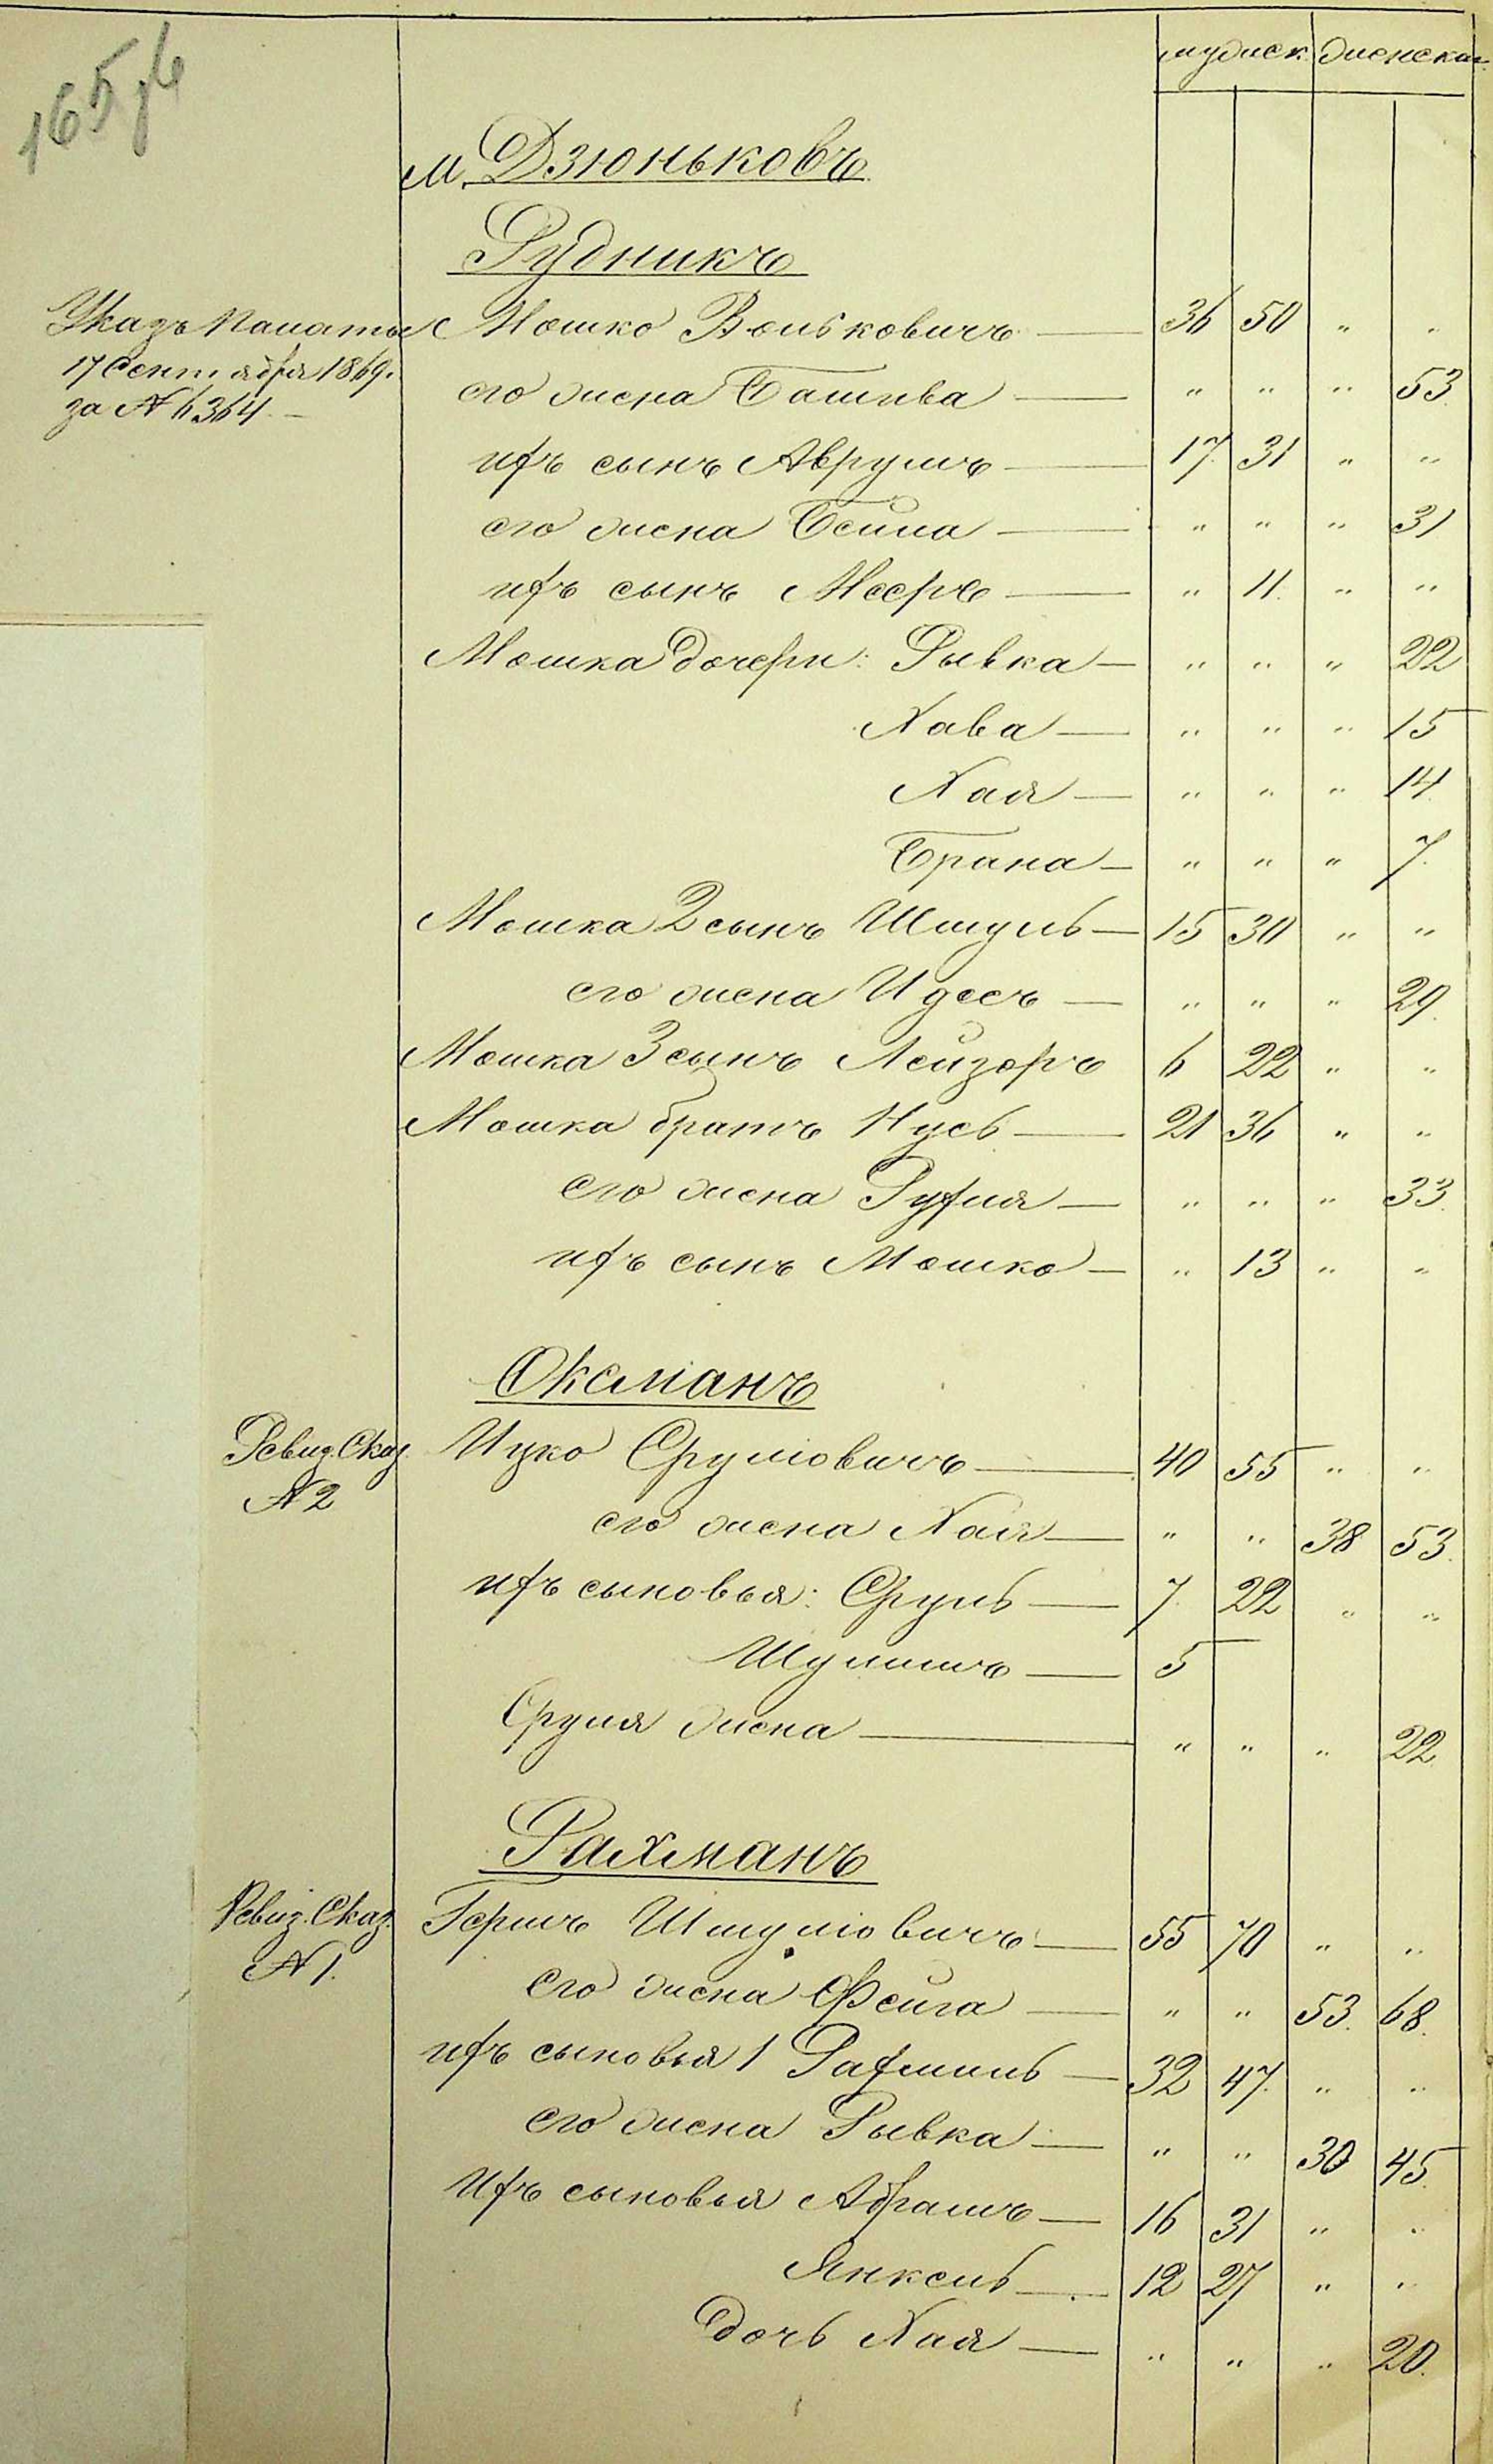 165
мужск. женска.
м. Дзюньковъ
Рудникъ
Указъ Палаты Мошко Вольковичъ 36 50 " "
17 Сентября 1869.
его жена Башива " " " 53
за № 6364.
ихъ сынъ Аврумъ 17 31 " "
его жена Бейла " " " 31
ихъ сынъ Мееръ " 11. " "
Мошка дочери: Рывка " " " 22
Хава " " " 15
Хая " " " 14.
Брана " " " 7.
Мошка 2 сынъ Шмуль 15 30 " "
его жена Идесъ " " " 29.
Мошка 3 сынъ Лейзоръ 6 22 " "
Мошка братъ Нусь 21 36 " "
его жена Рухля " " " 33.
ихъ сынъ Мошко " 13 " "
Оксманъ
Ревиз. Сказ. Ицко Срулiовичъ 40 55 " "
№ 2
его жена Хая " " 38 53.
ихъ сыновья: Сруль 7. 22 " "
Шулимъ 5
Сруля жена " " " 22
Рахманъ
Ревиз. Сказ. Гершъ Шмулiовичъ 55 70 " "
№ 1.
его жена Фейга " " 53. 68.
ихъ сыновья 1 Рахмиль 32 47. " "
его жена Рывка " " 30 45.
Ихъ сыновья Абрамъ 16 31 " "
Янкель 12 27 " "
Дочь Хая " " " 20.